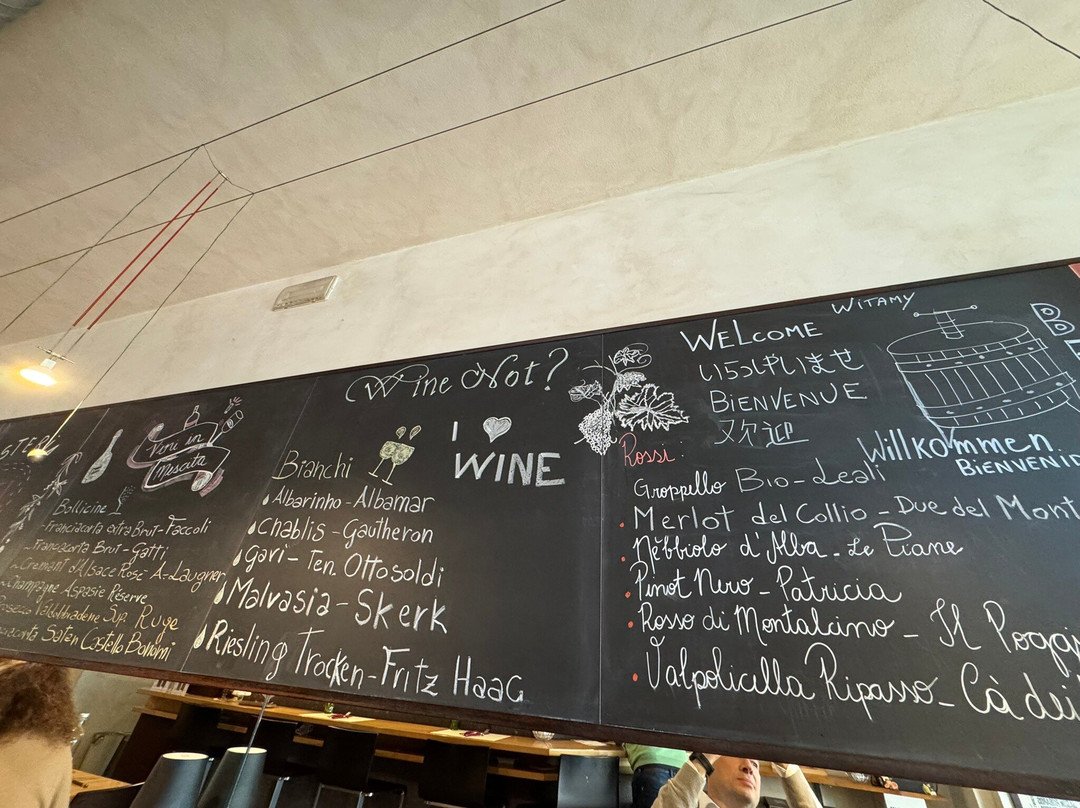 Vini in
Mescita
Bollicine
- Franciacorta extra Brut - Faccoli
- Franciacorta Brut - Gatti
- Cremant d'Alsace Rosé A-Laugner
- Champagne Aspasie Réserve
Valdobbiadene Sup. Ruge
Saten Castello Bonomi
Wine Not?
I WINE
Bianchi
Albarinho - Albamar
Chablis - Gautheron
Gavi - Ten. Ottosoldi
Malvasia - Skerk
Riesling Trocken - Fritz Haag
WITAMY
WELCOME
いらっしゃいませ
BIENVENUE
欢迎
Willkommen
BIENVENID
Rossi
Groppello Bio - Leali
Merlot del Collio - Due del Mont
Nebbiolo d'Alba - Le Piane
Pinot Nero - Patricia
Rosso di Montalcino - Il Poggi
Valpolicella Ripasso - Cà dei